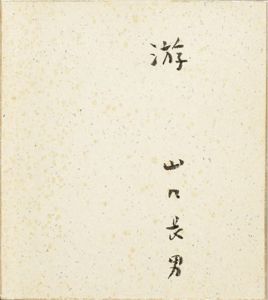 游
山口長男